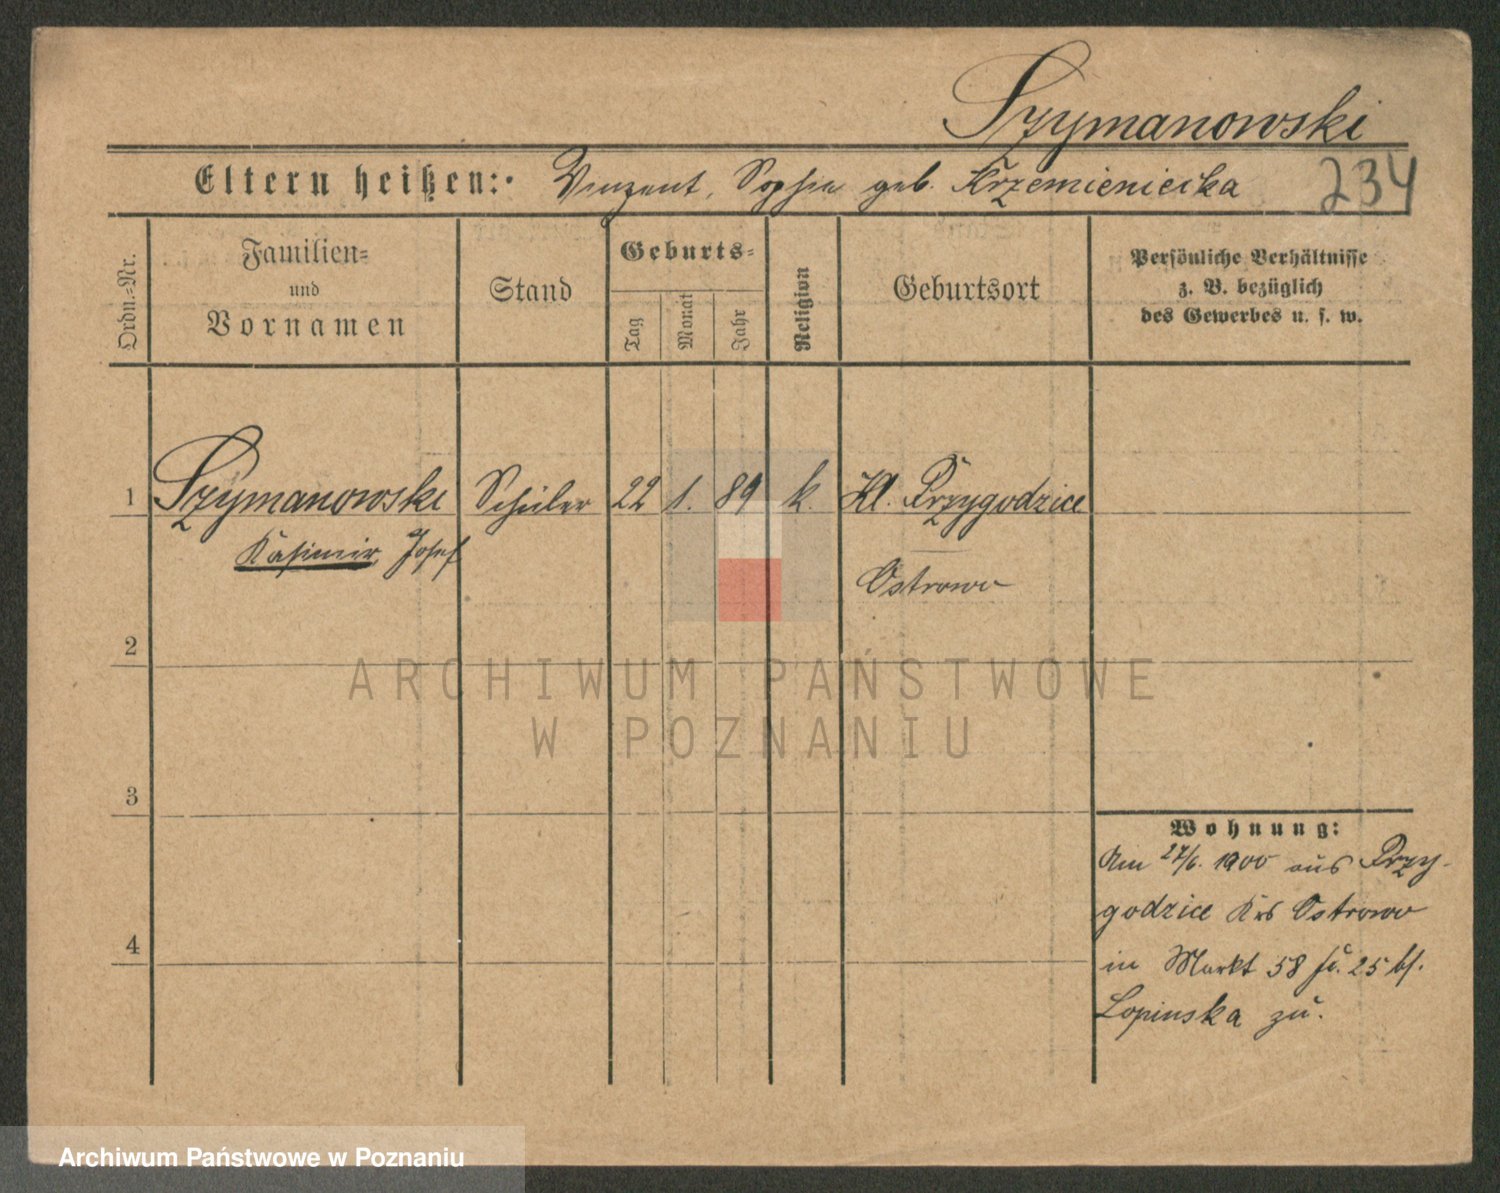 Szymanowski
Eltern heißen: Vinzent, Sophia geb. Krzemieniecka 234
Ordn.=Nr.
Familien=
und
Vornamen
Stand
Geburts=
Tag
Monat
Jahr
Religion
Geburtsort
Persönliche Verhältnisse
z. B. bezüglich
des Gewerbes u. s. w.
1 Szymanowski Schüler 22 1. 89 k. Kl. Przygodzice
Kasimir, Josef
Ostrowo
2
ARCHIWUM PAŃSTWOWE
W POZNANIU
3
Wohnung:
Am 27/6. 1900 aus Przy-
godzice Krs Ostrowo
4
in Markt 58 25 bf.
Lopinska zu.
Archiwum Państwowe w Poznaniu